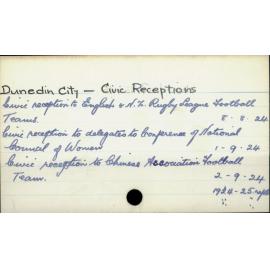 Dunedin City — Civic Receptions
Civic reception to English & N.Z. Rugby League Football
Teams. 8 - 8 - 24
Civic reception to delegates to Conference of National
Council of Women 1 - 9 - 24
Civic reception to Chinese Association Football
Team. 2 - 9 - 24
1924-25